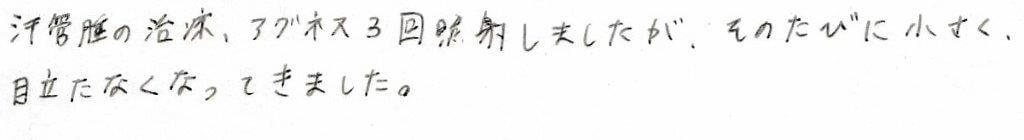 汗管腫の治療、アグネス3回照射しましたが、そのたびに小さく、
目立たなくなってきました。